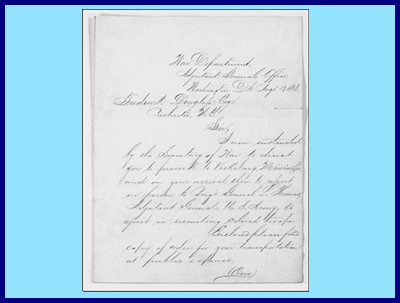 War Department,
Adjutant General's Office,
Washington D.C. Aug. 13, 1863.
Frederick Douglass Esq.
Rochester, N.Y.
Sir,
I am instructed
by the Secretary of War to direct
you to proceed to Vicksburg, Mississippi
and on your arrival there to report
in person to Brig'r General L. Thomas,
Adjutant General, U.S. Army, to
assist in recruiting colored troops.
Enclosed please find
copy of order for your transportation
at public expense.
(Over)